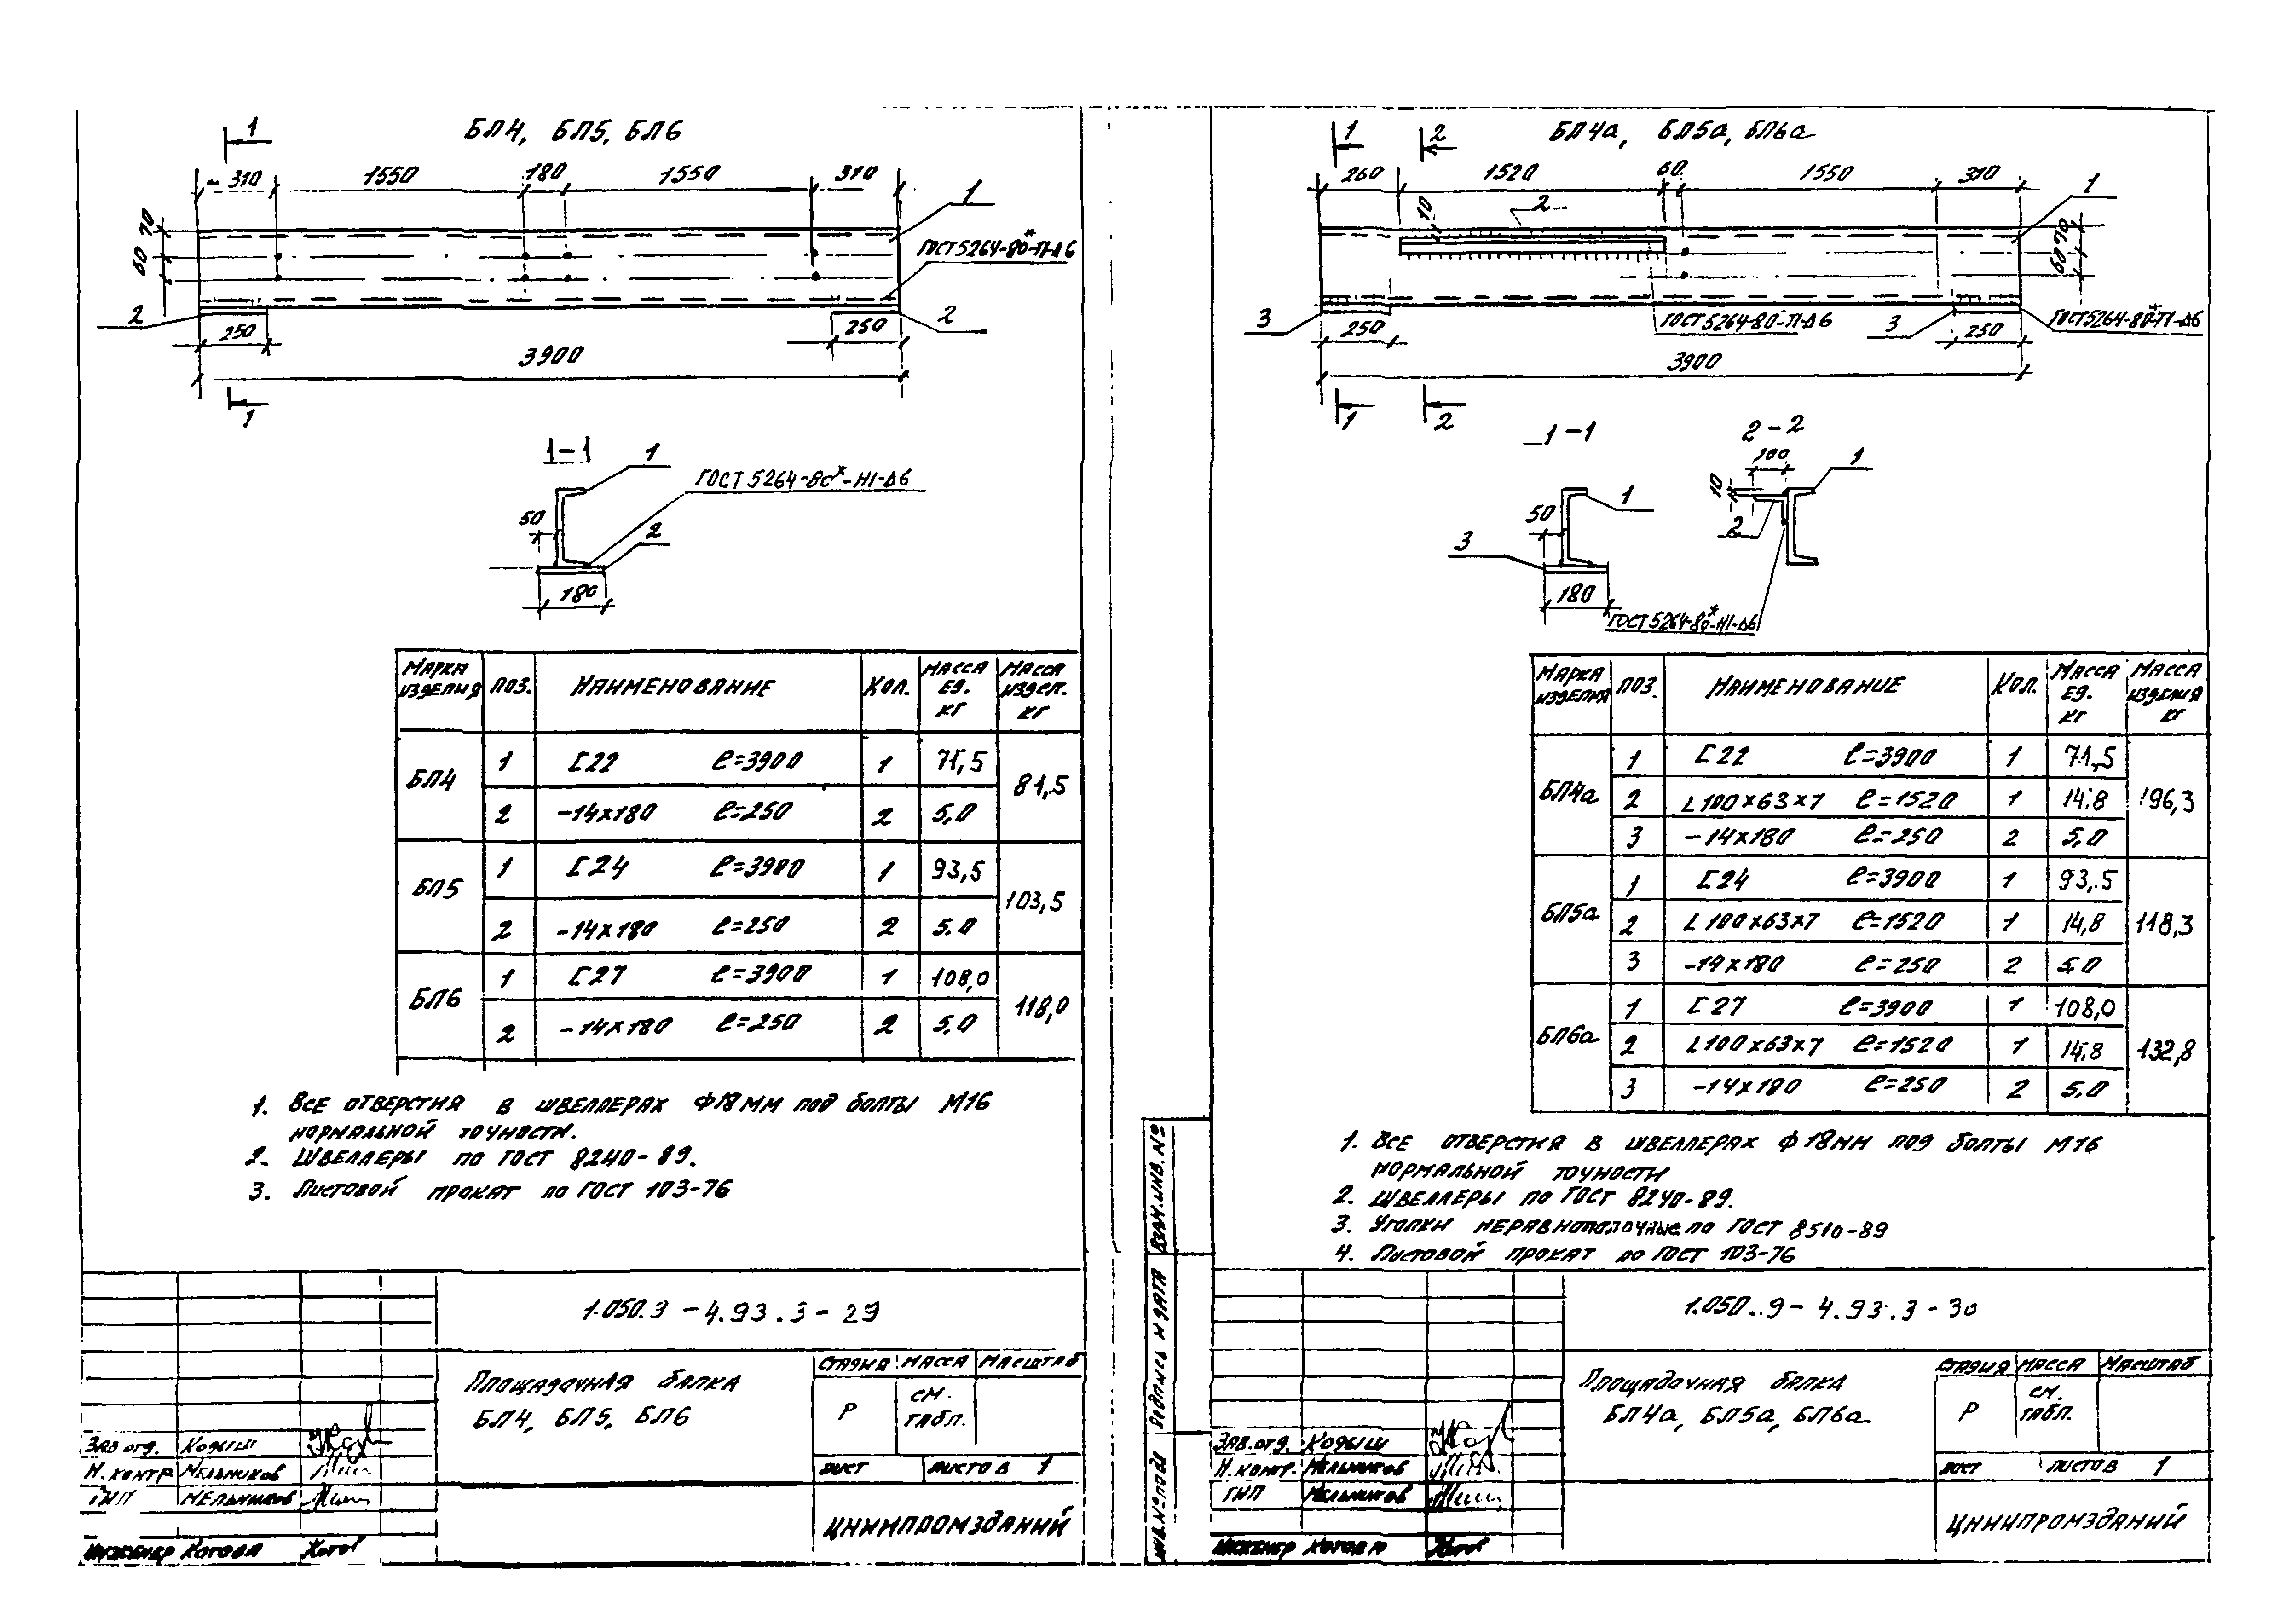 БЛ4, БЛ5, БЛ6
1
310 1550 180 1550 310
1
70
60
ГОСТ 5264-80*-Т1-Δ6
2
2
250
250
3900
1
1-1
1
ГОСТ 5264-80*-Н1-Δ6
50
2
180
МАРКА ИЗДЕЛИЯ ПОЗ. НАИМЕНОВАНИЕ КОЛ. МАССА ЕД. КГ МАССА ИЗДЕЛ. КГ
БЛ4 1 [22 ℓ=3900 1 71,5 81,5
2 -14×180 ℓ=250 2 5,0
БЛ5 1 [24 ℓ=3900 1 93,5 103,5
2 -14×180 ℓ=250 2 5.0
БЛ6 1 [27 ℓ=3900 1 108,0 118,0
2 -14×180 ℓ=250 2 5.0
1. ВСЕ ОТВЕРСТИЯ В ШВЕЛЛЕРАХ Ф18ММ ПОД БОЛТЫ М16
НОРМАЛЬНОЙ ТОЧНОСТИ.
2. ШВЕЛЛЕРЫ ПО ГОСТ 8240-89.
3. ЛИСТОВОЙ ПРОКАТ ПО ГОСТ 103-76
1.050.3-4.93.3-29
ПЛОЩАДОЧНАЯ БАЛКА
БЛ4, БЛ5, БЛ6
СТАДИЯ МАССА МАСШТАБ
Р СМ. ТАБЛ.
ЛИСТ ЛИСТОВ 1
ЗАВ.ОТД. КОДЫШ
Н.КОНТР МЕЛЬНИКОВ
ГИП МЕЛЬНИКОВ
ИНЖЕНЕР КОТОВА
ЦНИИПРОМЗДАНИЙ
БЛ4а, БЛ5а, БЛ6а
1 2
260 1520 60 1550 310
1
10
2
70
60
3
250
ГОСТ 5264-80-Т1-Δ6
3
250
ГОСТ 5264-80*-Т1-Δ6
3900
1 2
1-1 2-2
1
50
3
180
100
1
10
2
ГОСТ 5264-80*-Н1-Δ6
МАРКА ИЗДЕЛИЯ ПОЗ. НАИМЕНОВАНИЕ КОЛ. МАССА ЕД. КГ МАССА ИЗДЕЛИЯ КГ
БЛ4а 1 [22 ℓ=3900 1 71,5 196,3
2 L100×63×7 ℓ=1520 1 14.8
3 -14×180 ℓ=250 2 5,0
БЛ5а 1 [24 ℓ=3900 1 93,5 118,3
2 L100×63×7 ℓ=1520 1 14,8
3 -14×180 ℓ=250 2 5.0
БЛ6а 1 [27 ℓ=3900 1 108,0 132,8
2 L100×63×7 ℓ=1520 1 14.8
3 -14×180 ℓ=250 2 5.0
1. ВСЕ ОТВЕРСТИЯ В ШВЕЛЛЕРАХ Ф18ММ ПОД БОЛТЫ М16
НОРМАЛЬНОЙ ТОЧНОСТИ
2. ШВЕЛЛЕРЫ ПО ГОСТ 8240-89.
3. УГОЛКИ НЕРАВНОПОЛОЧНЫЕ ПО ГОСТ 8510-89
4. ЛИСТОВОЙ ПРОКАТ ПО ГОСТ 103-76
ИНВ.№ ПОДЛ ПОДПИСЬ И ДАТА ВЗАМ.ИНВ.№
1.050.9-4.93.3-30
ПЛОЩАДОЧНАЯ БАЛКА
БЛ4а, БЛ5а, БЛ6а
СТАДИЯ МАССА МАСШТАБ
Р СМ. ТАБЛ.
ЛИСТ ЛИСТОВ 1
ЗАВ.ОТД. КОДЫШ
Н.КОНТР. МЕЛЬНИКОВ
ГИП МЕЛЬНИКОВ
ИНЖЕНЕР КОТОВА
ЦНИИПРОМЗДАНИЙ